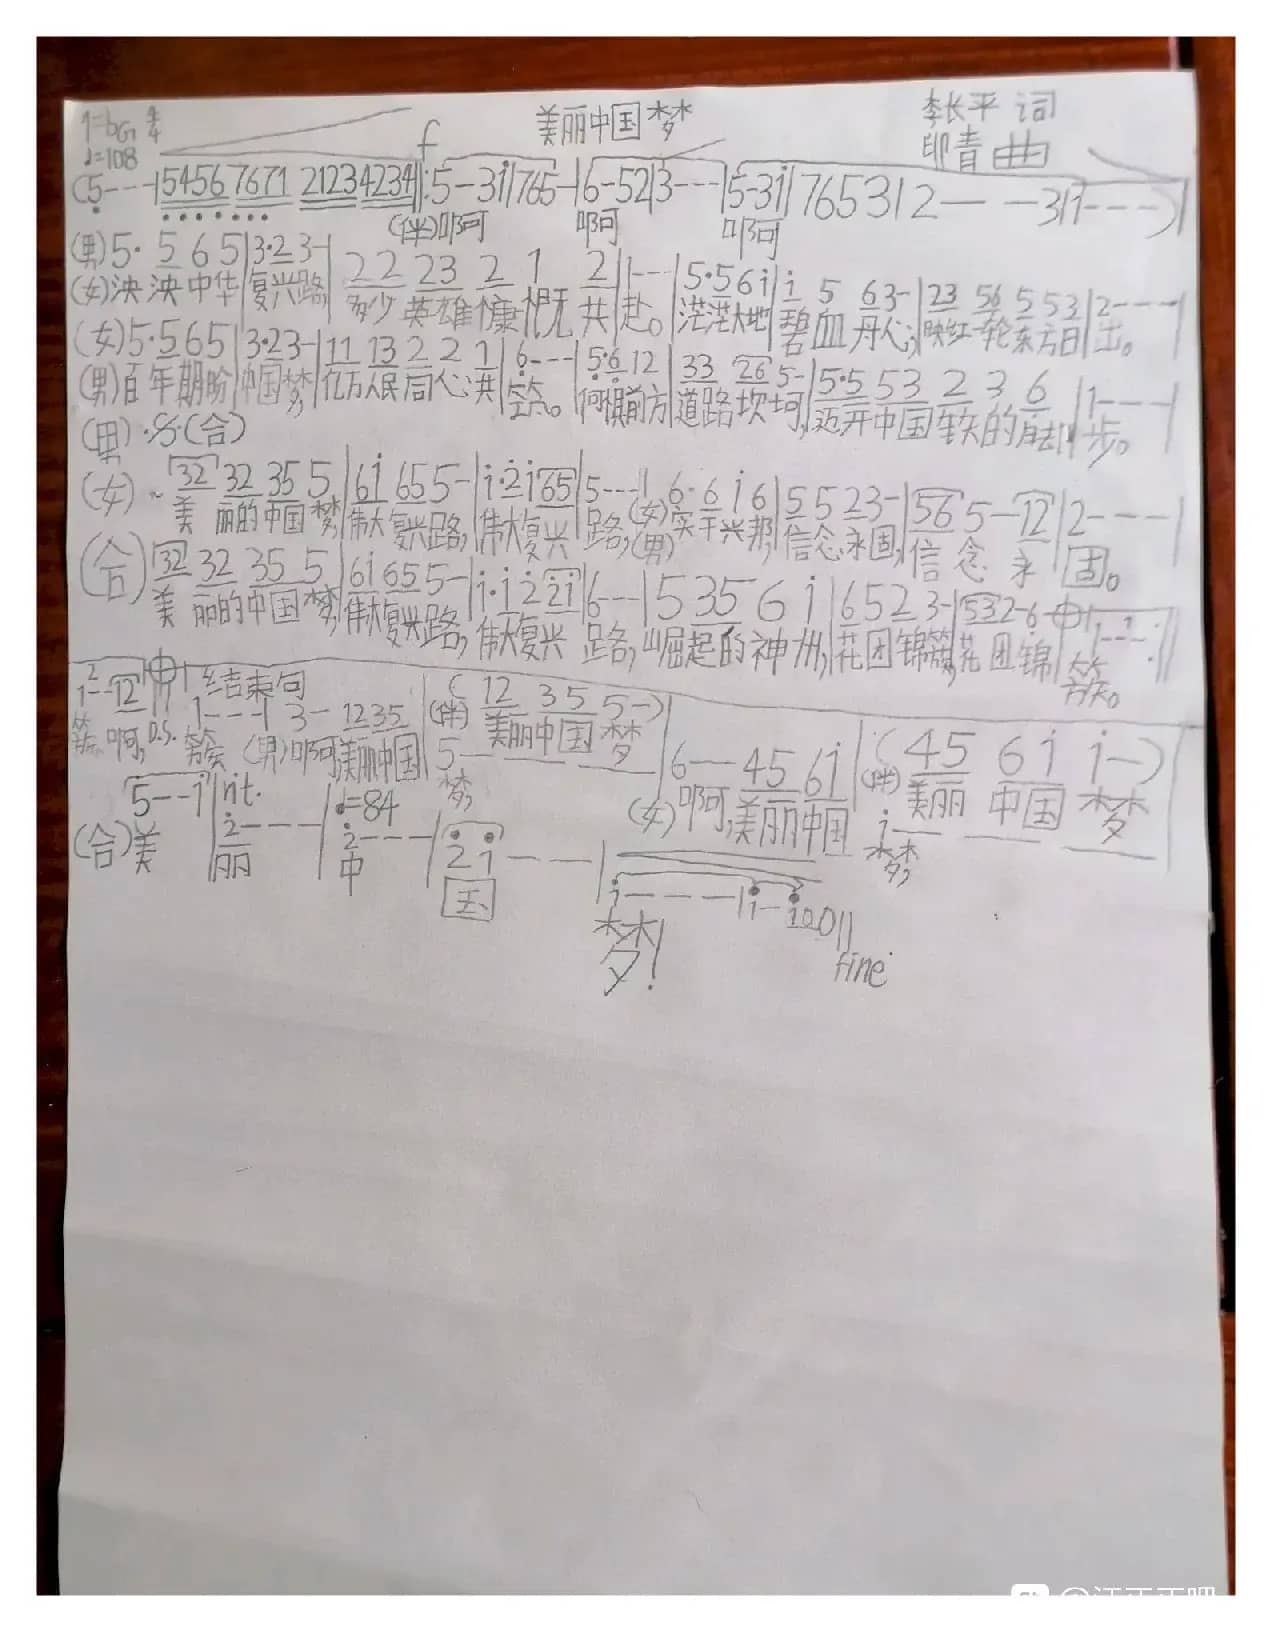 1=bG 4/4
美丽中国梦
李长平 词
♩=108
f
印青 曲
(5---|5456 7671 2123 4234‖:5-3i|765-|6-52|3---|5-3i|7653|2---3|1---)|
(伴)啊 啊 啊
(男)5· 5 6 5|3·2 3-|22 23 2 1 2|1---|5·5 6 i|i 5 6 3-|23 56 5 53|2---|
(女)泱 泱 中华 复兴路, 多少 英雄 慷 概 共 赴。 茫茫大地 碧 血 丹心; 映红一轮东方日 出。
(女)5·5 6 5|3·2 3-|11 13 2 2 1|6---|5·6 12|33 26 5-|5·5 53 2 3 6|1---|
(男)百年期盼 中国梦, 亿万人民 同 心共 筑。 何惧前方 道路坎坷, 迈开中国 铁的 脚 步。
(男)·S·(合)
(女) 32 32 35 5|6i 65 5-|i·2 i 65|5---|(女)6·6 i 6|5 5 2 3-|56 5-12|2---|
美 丽的 中国 梦, 伟大 复兴路, 伟大复兴 路,(男)实干兴邦, 信念永固, 信 念 永 固。
(合) 32 32 35 5|6i 65 5-|i·i 2 2i|6---|5 35 6 i|6 5 2 3-|53 2-6|1---:‖
美 丽的 中国 梦, 伟大复兴路, 伟大复兴 路, 崛起的神州, 花团锦簇, 花 团 锦 簇。
2 结束句
1--12| |1---|3- 1235|(12 35 5-)|6-- 45 6i|(45 6i i-)|
簇。 啊, D.S. 簇 (男)啊,美丽中国 (伴)美丽中国 梦 (女)啊,美丽中国 (伴)美丽 中国 梦
5--- i---
梦, 梦,
5--i|rit. 2---|♩=84 2---|2i--|i---|i-i00‖
(合)美 丽 中 国 梦!
fine